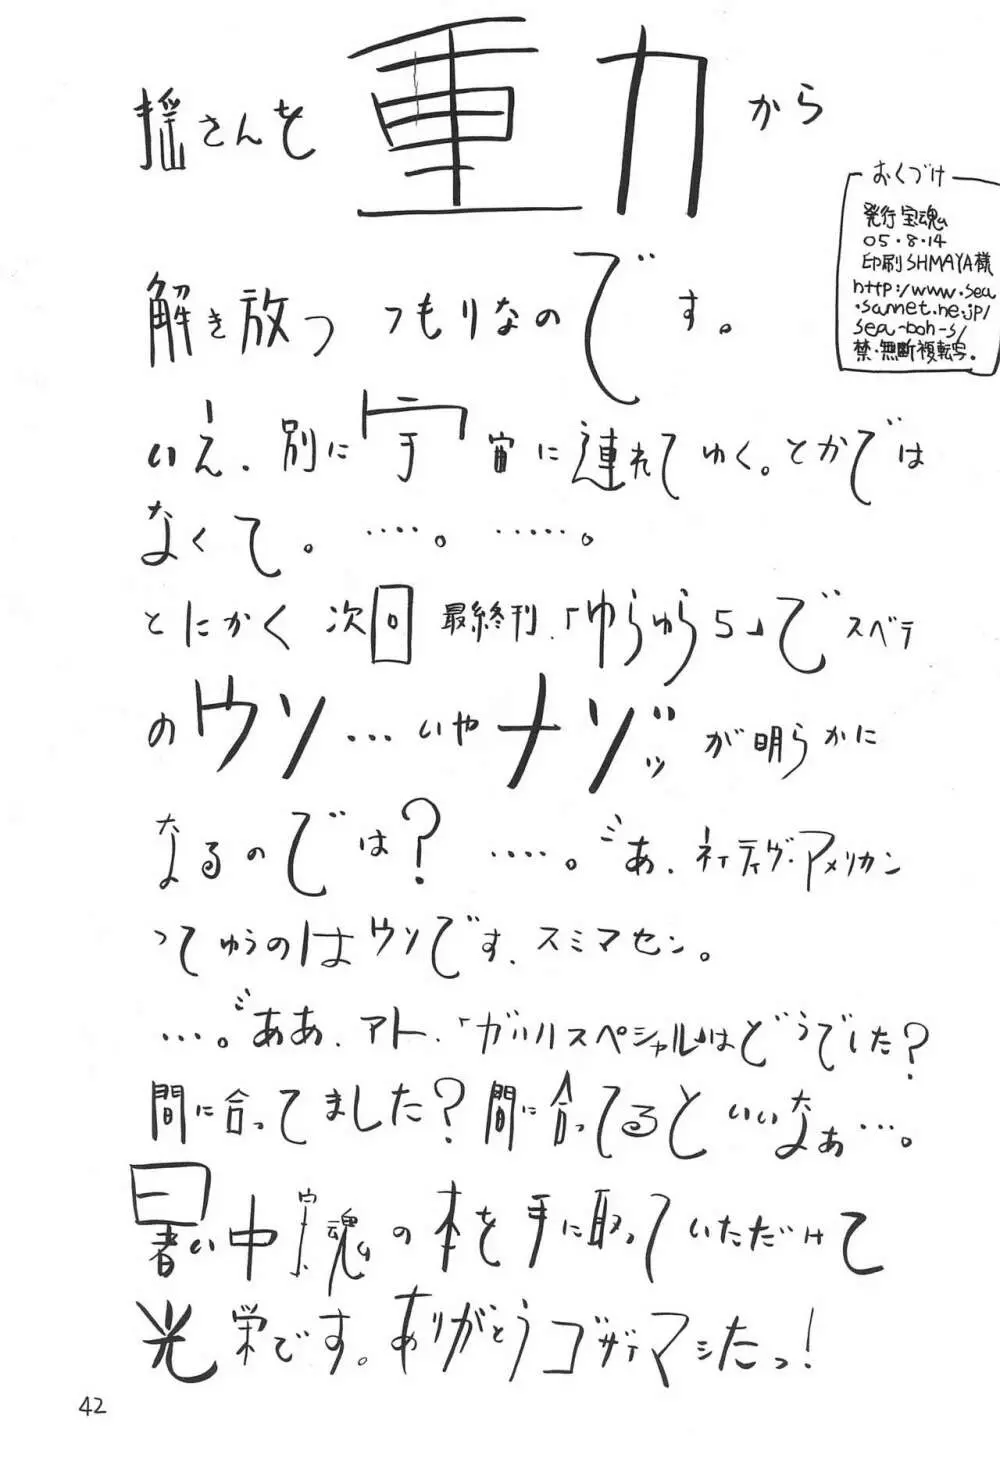 揺さんを重力から
解き放つつもりなのです。
いえ、別に宇宙に連れてゆく。とかでは
なくて。‥‥。‥‥‥。
とにかく次回最終刊、「ゆらゆら5」でスベテ
のウソ…いやナゾッッが明らかに
なるのでは?‥‥。あ、ネイティヴ・アメリカン
ってゆうのはウソです、スミマセン。
…。ああ、アト、「ガハハスペシャル」はどうでした?
間に合ってました?間に合ってるといいなぁ…。
暑い中宝魂の本を手に取っていただけて
光栄です。ありがとうゴザイマシたっ!
おくづけ
発行 宝魂
05・8・14
印刷 SHMAYA様
http://www.sea
.sannet.ne.jp/
sea-boh-s/
禁・無断複転写。
42